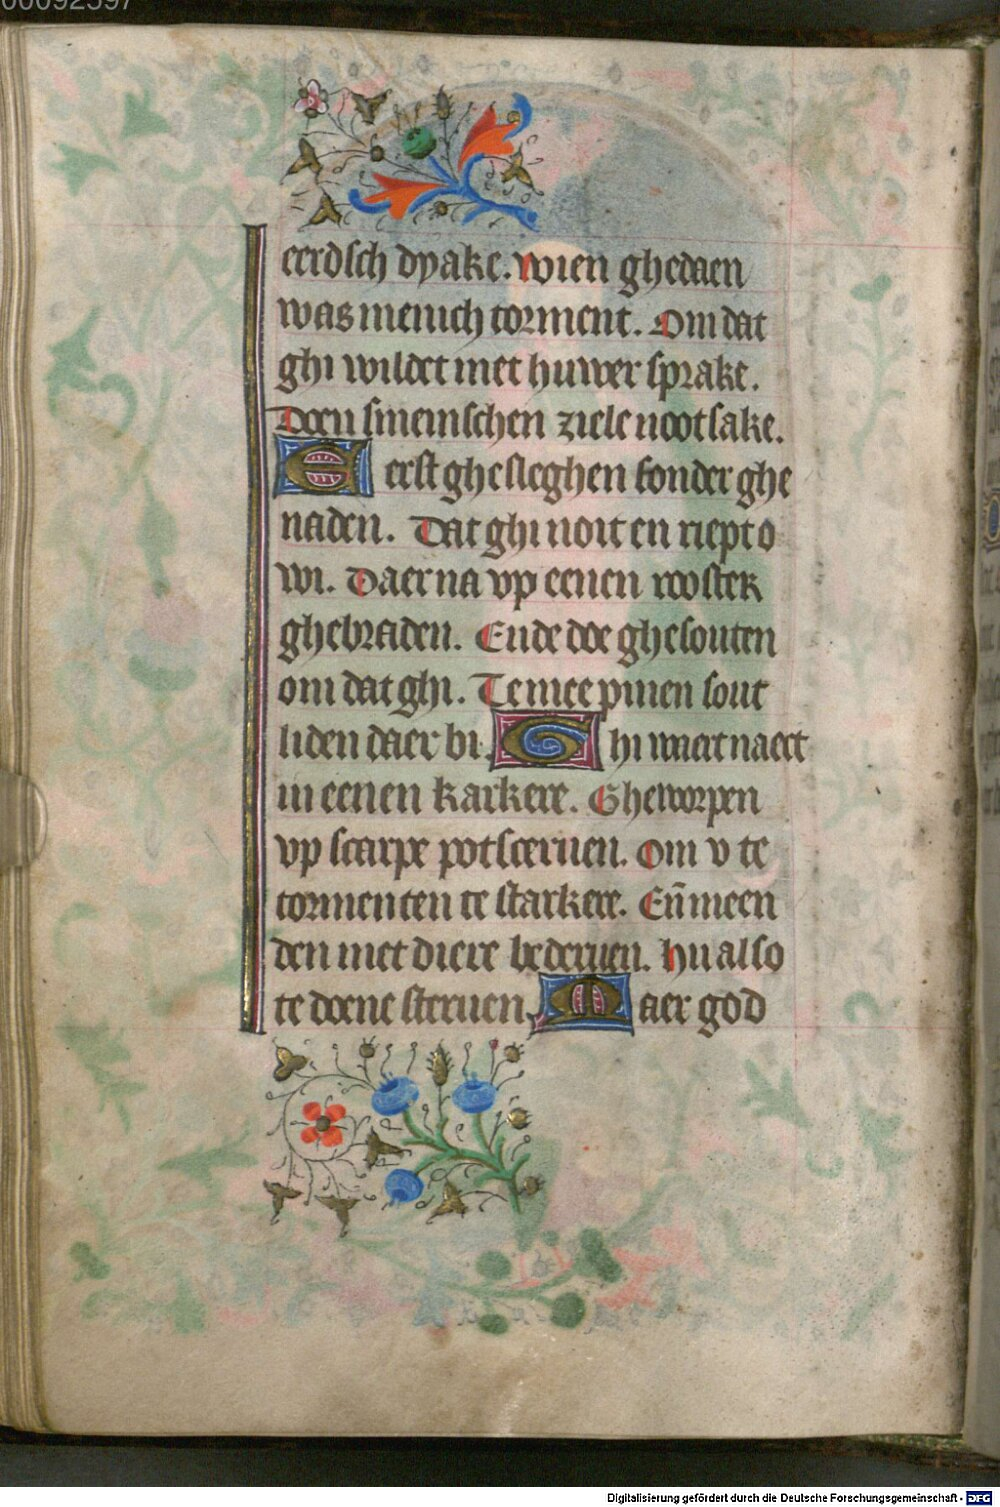 00092597
eerdsch dyake. wien ghedaen
was menich torment. Om dat
ghi wildet met huwer sprake.
Doen smeinschen ziele nootsake.
Eerst ghesleghen sonder ghe
naden. Dat ghi noit en riept o
wi. Daer na vp eenen rooster
ghebraden. Ende doe ghesouten
om dat ghi. Te mee pinen sout
liden daer bi. Ghi waert naect
in eenen karkere. Gheworpen
vp scarpe potscervuen. Om v te
tormenten te starkere. Eñ meen
den met diere bederuen. Hu also
te doene steruen. Maer god
Digitalisierung gefördert durch die Deutsche Forschungsgemeinschaft - DFG